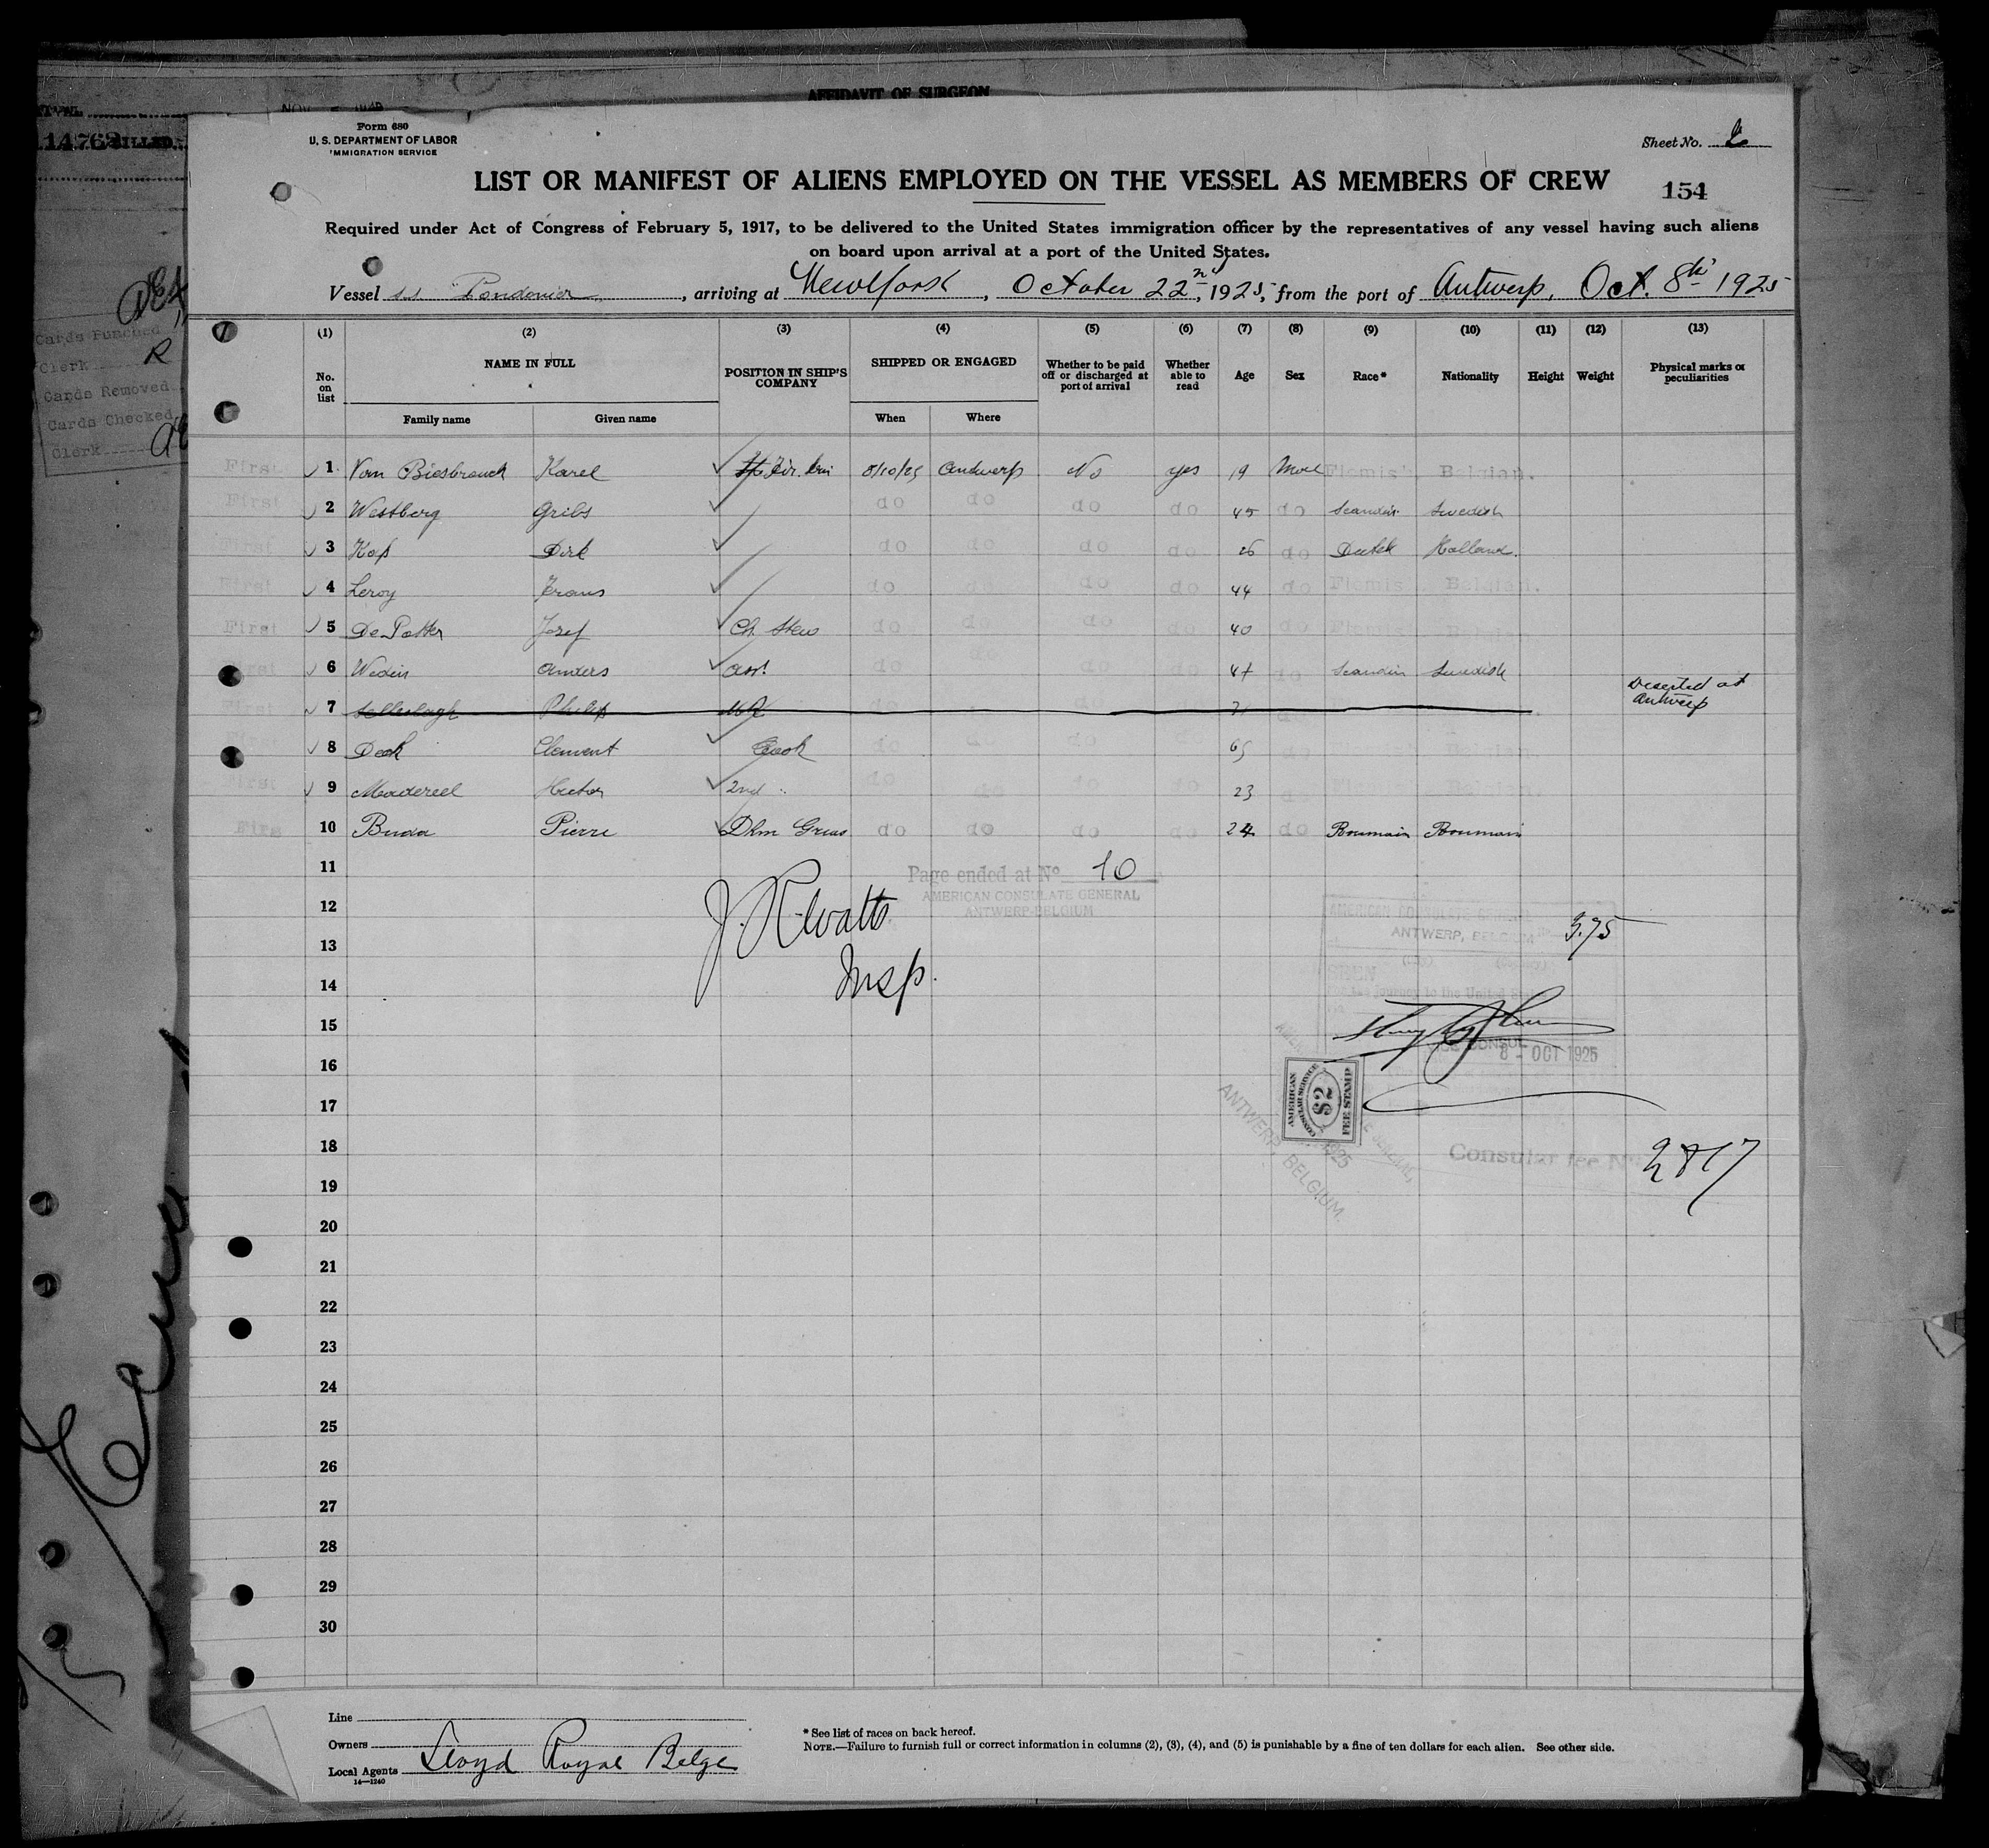 AFFIDAVIT OF SURGEON
14762
Form 680
U. S. DEPARTMENT OF LABOR
IMMIGRATION SERVICE
Sheet No.
LIST OR MANIFEST OF ALIENS EMPLOYED ON THE VESSEL AS MEMBERS OF CREW
154
Required under Act of Congress of February 5, 1917, to be delivered to the United States immigration officer by the representatives of any vessel having such aliens
on board upon arrival at a port of the United States.
Vessel s.s. , arriving at New York, October 22nd, 1925, from the port of Antwerp, Oct. 8th 1925
Cards Punched
Clerk
Cards Removed
Cards Checked
Clerk
(1) (2) (3) (4) (5) (6) (7) (8) (9) (10) (11) (12) (13)
No. on list NAME IN FULL POSITION IN SHIP'S COMPANY SHIPPED OR ENGAGED Whether to be paid off or discharged at port of arrival Whether able to read Age Sex Race* Nationality Height Weight Physical marks or peculiarities
Family name Given name When Where
First 1 Van Biesbrouck Karel 8/10/25 Antwerp No yes 19 Male Flemish Belgian.
First 2 Westberg do do do do 45 do Scandin. Swedish
First 3 Kop Dirk do do do do 26 do Dutch Holland.
First 4 Leroy Frans do do do do 44 do Flemis Belgian.
First 5 De Potter Jozef Ch. Stew do do do do 40 do Flemis
First 6 Wedin Anders Ass. do do do do 47 do Scandin Swedish
First 7 Philip do Deserted at
Antwerp
8 Clement Cook do do 65 do Flemish Belgian.
First 9 Hector 2nd " do do do do 23 do Flemish Belgian.
Firs 10 Buda Pierre Dkm do do do do 24 do Roumain Roumain
11
Page ended at No. 10
AMERICAN CONSULATE GENERAL
ANTWERP-BELGIUM
12
J. R. Watts
Insp.
13
14
AMERICAN CONSULATE GENERAL
ANTWERP, BELGIUM
3.75
SEEN
For the journey to the United States
VICE CONSUL
8 - OCT 1925
15
16
17
AMERICAN
CONSULAR SERVICE
$2
FEE STAMP
ANTWERP, BELGIUM.
18
Consular fee No. 2817
19
20
21
22
23
24
25
26
27
28
29
30
Line
Owners
Local Agents Lloyd Royal Belge
14—1240
* See list of races on back hereof.
NOTE.—Failure to furnish full or correct information in columns (2), (3), (4), and (5) is punishable by a fine of ten dollars for each alien. See other side.